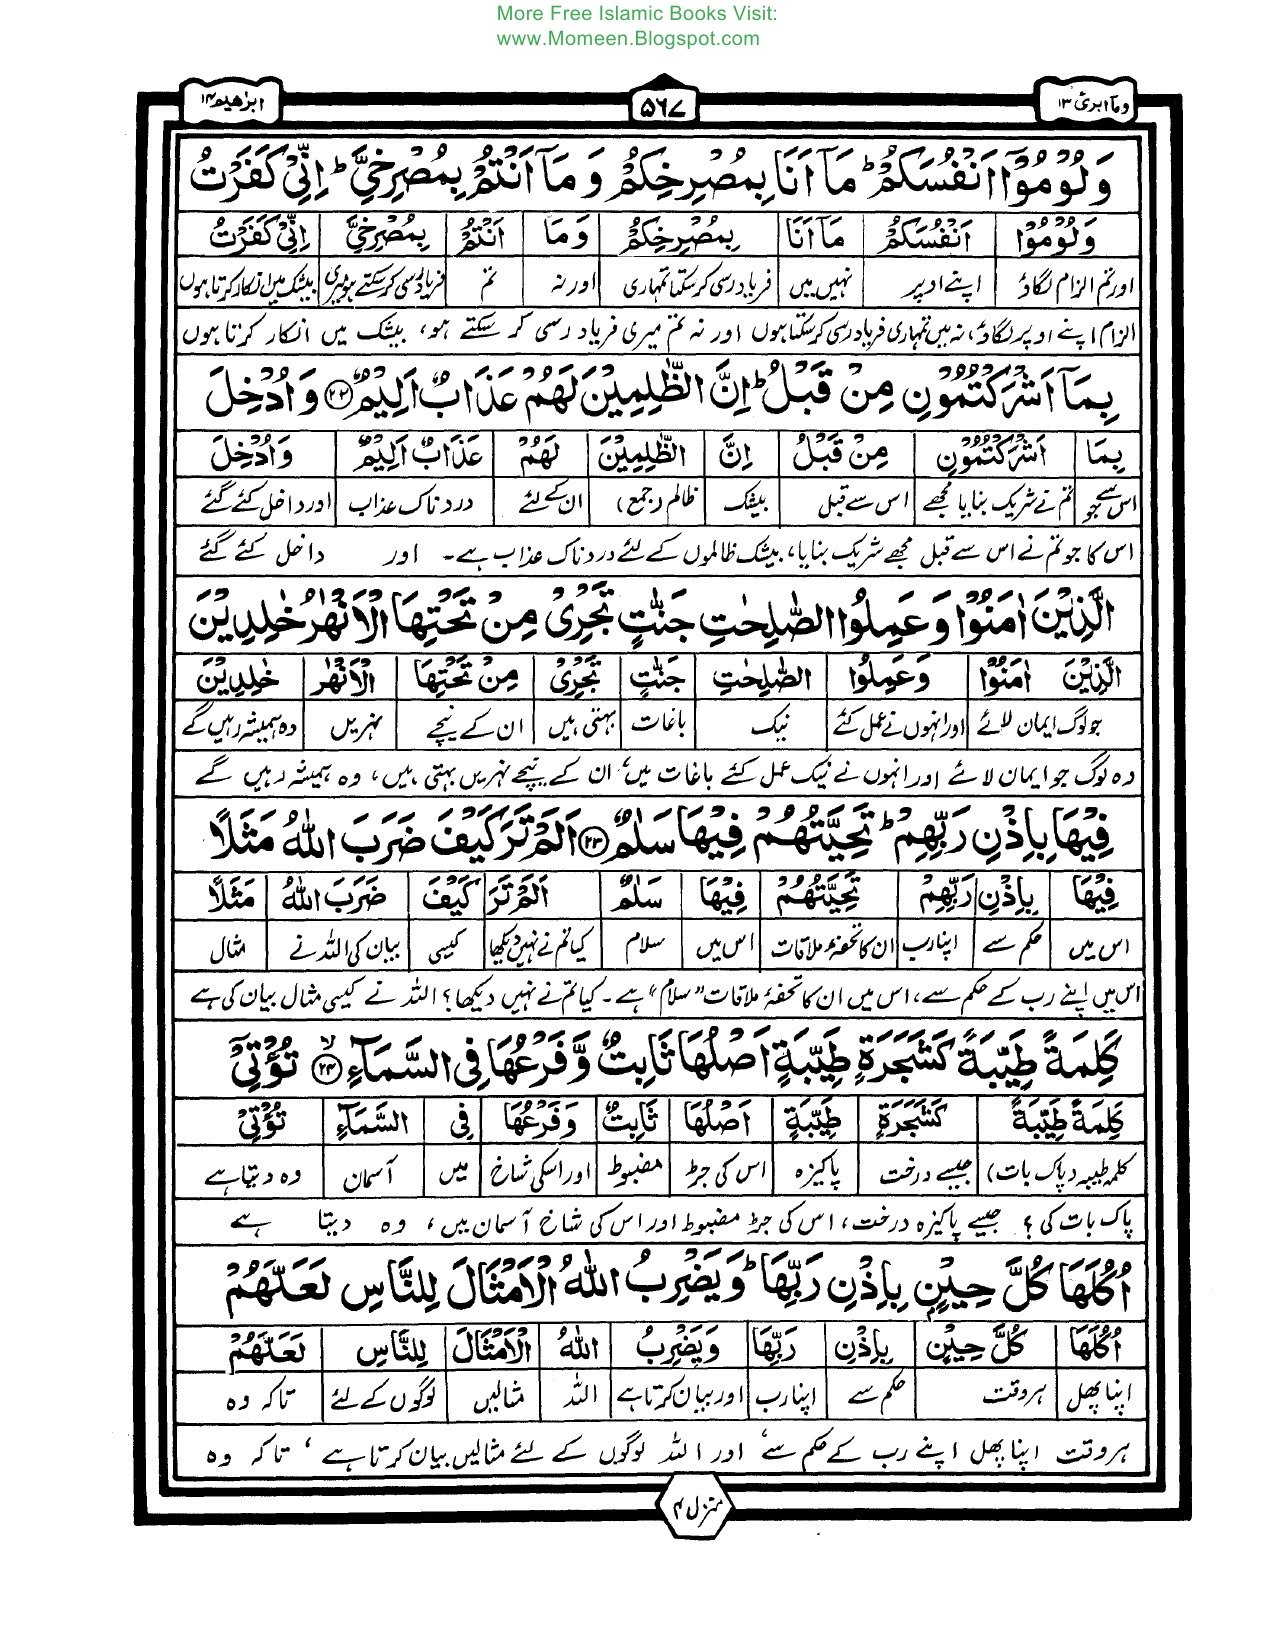 More Free Islamic Books Visit:
www.Momeen.Blogspot.com
ومآ ابرئ ۱۳
۵۶۷
ابرٰهیم ۱۴
وَلُوْمُوْۤا اَنْفُسَكُمْ ؕ مَاۤ اَنَا بِمُصْرِخِكُمْ وَ مَاۤ اَنْتُمْ بِمُصْرِخِيَّ ؕ اِنِّيْ كَفَرْتُ
وَلُوْمُوْۤا اَنْفُسَكُمْ مَاۤ اَنَا بِمُصْرِخِكُمْ وَمَا اَنْتُمْ بِمُصْرِخِيَّ اِنِّيْ كَفَرْتُ
اور تم الزام لگاؤ اپنے اوپر نہیں میں فریاد رسی کرسکتا تمہاری اور نہ تم فریاد رسی کرسکتے ہو میری بیشک میں انکار کرتا ہوں
الزام اپنے اوپر لگاؤ، نہ میں تمہاری فریاد رسی کرسکتا ہوں اور نہ تم میری فریاد رسی کر سکتے ہو، بیشک میں انکار کرتا ہوں
بِمَاۤ اَشْرَكْتُمُوْنِ مِنْ قَبْلُ ؕ اِنَّ الظّٰلِمِيْنَ لَهُمْ عَذَابٌ اَلِيْمٌ ۲۲ وَ اُدْخِلَ
بِمَا اَشْرَكْتُمُوْنِ مِنْ قَبْلُ اِنَّ الظّٰلِمِيْنَ لَهُمْ عَذَابٌ اَلِيْمٌ وَاُدْخِلَ
اس سے جو تم نے شریک بنایا مجھے اس سے قبل بیشک ظالم (جمع) ان کے لئے دردناک عذاب اور داخل کئے گئے
اس کا جو تم نے اس سے قبل مجھے شریک بنایا، بیشک ظالموں کے لئے دردناک عذاب ہے۔ اور داخل کئے گئے
الَّذِيْنَ اٰمَنُوْا وَ عَمِلُوا الصّٰلِحٰتِ جَنّٰتٍ تَجْرِيْ مِنْ تَحْتِهَا الْاَنْهٰرُ خٰلِدِيْنَ
الَّذِيْنَ اٰمَنُوْا وَعَمِلُوا الصّٰلِحٰتِ جَنّٰتٍ تَجْرِيْ مِنْ تَحْتِهَا الْاَنْهٰرُ خٰلِدِيْنَ
جو لوگ ایمان لائے اور انہوں نے عمل کئے نیک باغات بہتی ہیں ان کے نیچے نہریں وہ ہمیشہ رہیں گے
وہ لوگ جو ایمان لائے اور انہوں نے نیک عمل کئے باغات میں، ان کے نیچے نہریں بہتی ہیں، وہ ہمیشہ رہیں گے
فِيْهَا بِاِذْنِ رَبِّهِمْ ؕ تَحِيَّتُهُمْ فِيْهَا سَلٰمٌ ۲۳ اَلَمْ تَرَ كَيْفَ ضَرَبَ اللّٰهُ مَثَلًا
فِيْهَا بِاِذْنِ رَبِّهِمْ تَحِيَّتُهُمْ فِيْهَا سَلٰمٌ اَلَمْ تَرَ كَيْفَ ضَرَبَ اللّٰهُ مَثَلًا
اس میں حکم سے اپنا رب ان کا تحفۂ ملاقات اس میں سلام کیا تم نے نہیں دیکھا کیسی بیان کی اللہ نے مثال
اس میں اپنے رب کے حکم سے، اس میں ان کا تحفۂ ملاقات "سلام" ہے۔ کیا تم نے نہیں دیکھا؟ اللہ نے کیسی مثال بیان کی ہے
كَلِمَةً طَيِّبَةً كَشَجَرَةٍ طَيِّبَةٍ اَصْلُهَا ثَابِتٌ وَّ فَرْعُهَا فِي السَّمَآءِ ۙ ۲۴ تُؤْتِيْۤ
كَلِمَةً طَيِّبَةً كَشَجَرَةٍ طَيِّبَةٍ اَصْلُهَا ثَابِتٌ وَفَرْعُهَا فِي السَّمَآءِ تُؤْتِيْ
کلمہ طیبہ (پاک بات) جیسے درخت پاکیزہ اس کی جڑ مضبوط اور اسکی شاخ میں آسمان وہ دیتا ہے
پاک بات کی؟ جیسے پاکیزہ درخت، اس کی جڑ مضبوط اور اس کی شاخ آسمان میں، وہ دیتا ہے
اُكُلَهَا كُلَّ حِيْنٍۭ بِاِذْنِ رَبِّهَا ؕ وَ يَضْرِبُ اللّٰهُ الْاَمْثَالَ لِلنَّاسِ لَعَلَّهُمْ
اُكُلَهَا كُلَّ حِيْنٍ بِاِذْنِ رَبِّهَا وَيَضْرِبُ اللّٰهُ الْاَمْثَالَ لِلنَّاسِ لَعَلَّهُمْ
اپنا پھل ہر وقت حکم سے اپنا رب اور بیان کرتا ہے اللہ مثالیں لوگوں کے لئے تاکہ وہ
ہر وقت اپنا پھل اپنے رب کے حکم سے، اور اللہ لوگوں کے لئے مثالیں بیان کرتا ہے، تاکہ وہ
منزل ۳